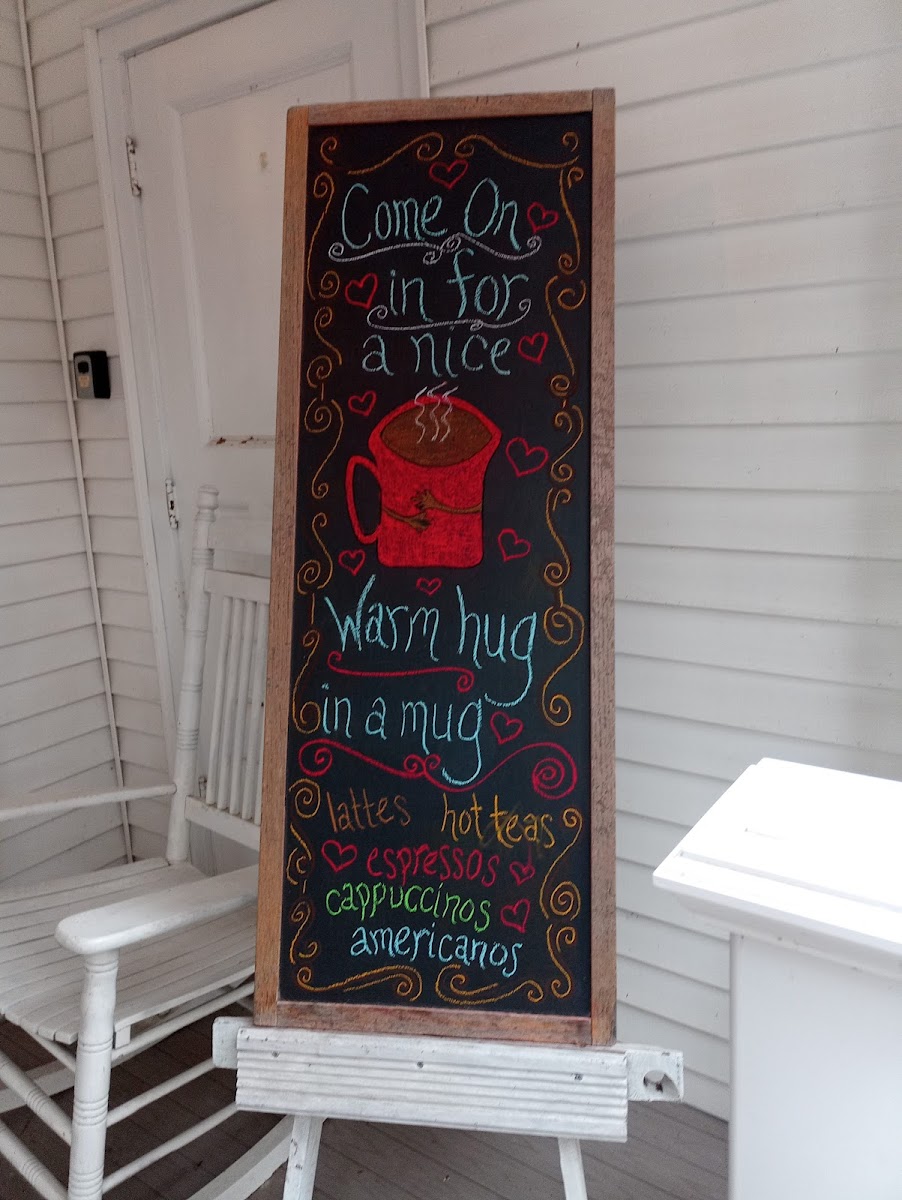 Come On
in for
a nice
Warm hug
in a mug
lattes hot teas
espressos
cappuccinos
americanos